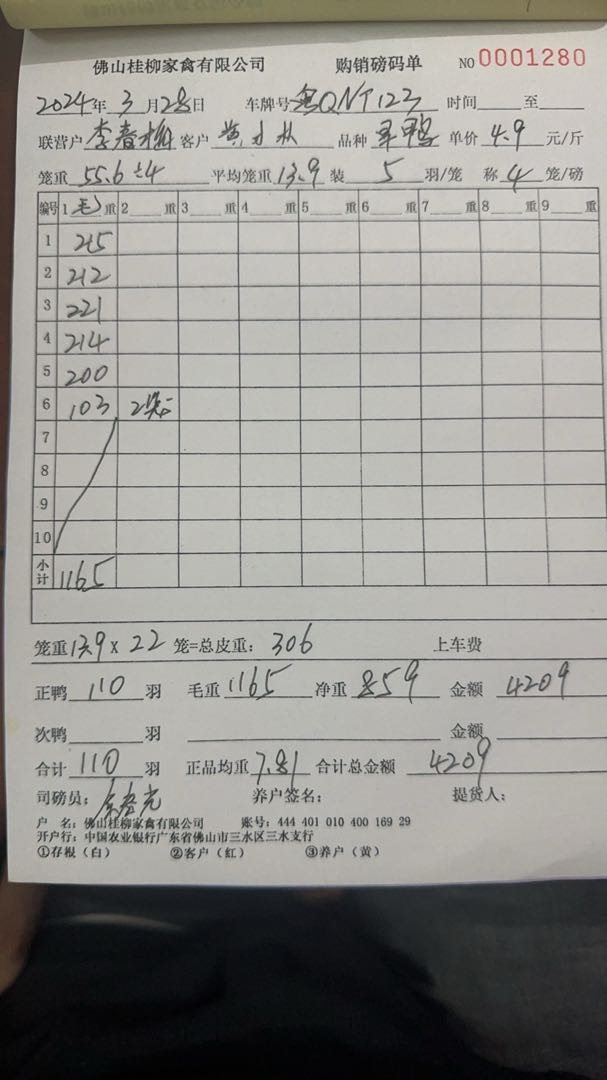 佛山桂柳家禽有限公司 购销磅码单 NO 0001280
2024年 3月28日 车牌号 粤QNT123 时间 至
联营户 李春梅 客户 黄 品种 鸭 单价 4.9 元/斤
笼重 55.6÷4 平均笼重 13.9 装 5 羽/笼 称 4 笼/磅
编号 1 毛 重 2 重 3 重 4 重 5 重 6 重 7 重 8 重 9 重
1 215
2 212
3 221
4 214
5 200
6 103 2
7
8
9
10
小计 1165
笼重 13.9 x 22 笼=总皮重: 306 上车费
正鸭 110 羽 毛重 1165 净重 859 金额 4209
次鸭 羽 金额
合计 110 羽 正品均重 7.81 合计总金额 4209
司磅员: 养户签名: 提货人:
户 名: 佛山桂柳家禽有限公司 账号: 444 401 010 400 169 29
开户行: 中国农业银行广东省佛山市三水区三水支行
①存根(白) ②客户(红) ③养户(黄)